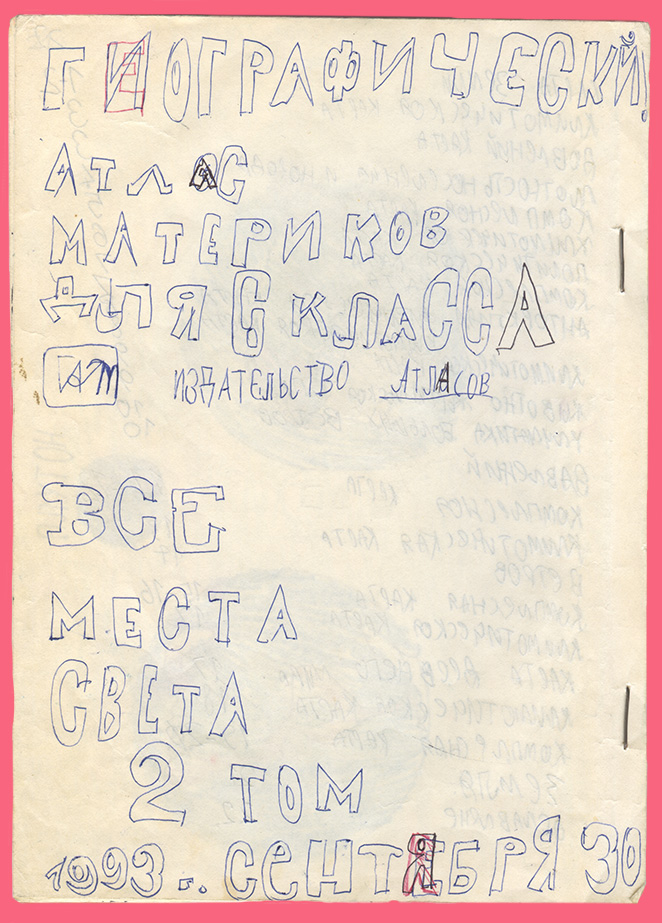 ГЕОГРАФИЧЕСКИЙ
АТЛАС
МАТЕРИКОВ
ДЛЯ 6 КЛАССА
ИЗДАТЕЛЬСТВО АТЛАСОВ
ВСЕ
МЕСТА
СВЕТА
2 ТОМ
1993 г. СЕНТЯБРЯ 30